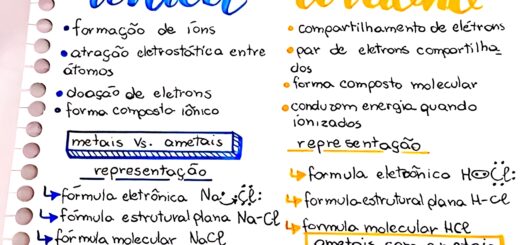 iônica
covalente
• formação de íons
• atração eletrostática entre
átomos
• doação de eletrons
• forma composto iônico
metais vs. ametais
representação
↳ formula eletrônica Na Cl:
↳ formula estrutural plana Na-Cl
↳ formula molecular NaCl
• compartilhamento de elétrons
• par de eletrons compartilha
dos
• forma composto molecular
• conduzem energia quando
ionizados
representação
↳ formula eletrônica H Cl:
↳ formula estrutural plana H-Cl
↳ formula molecular HCl
ametais com ametais